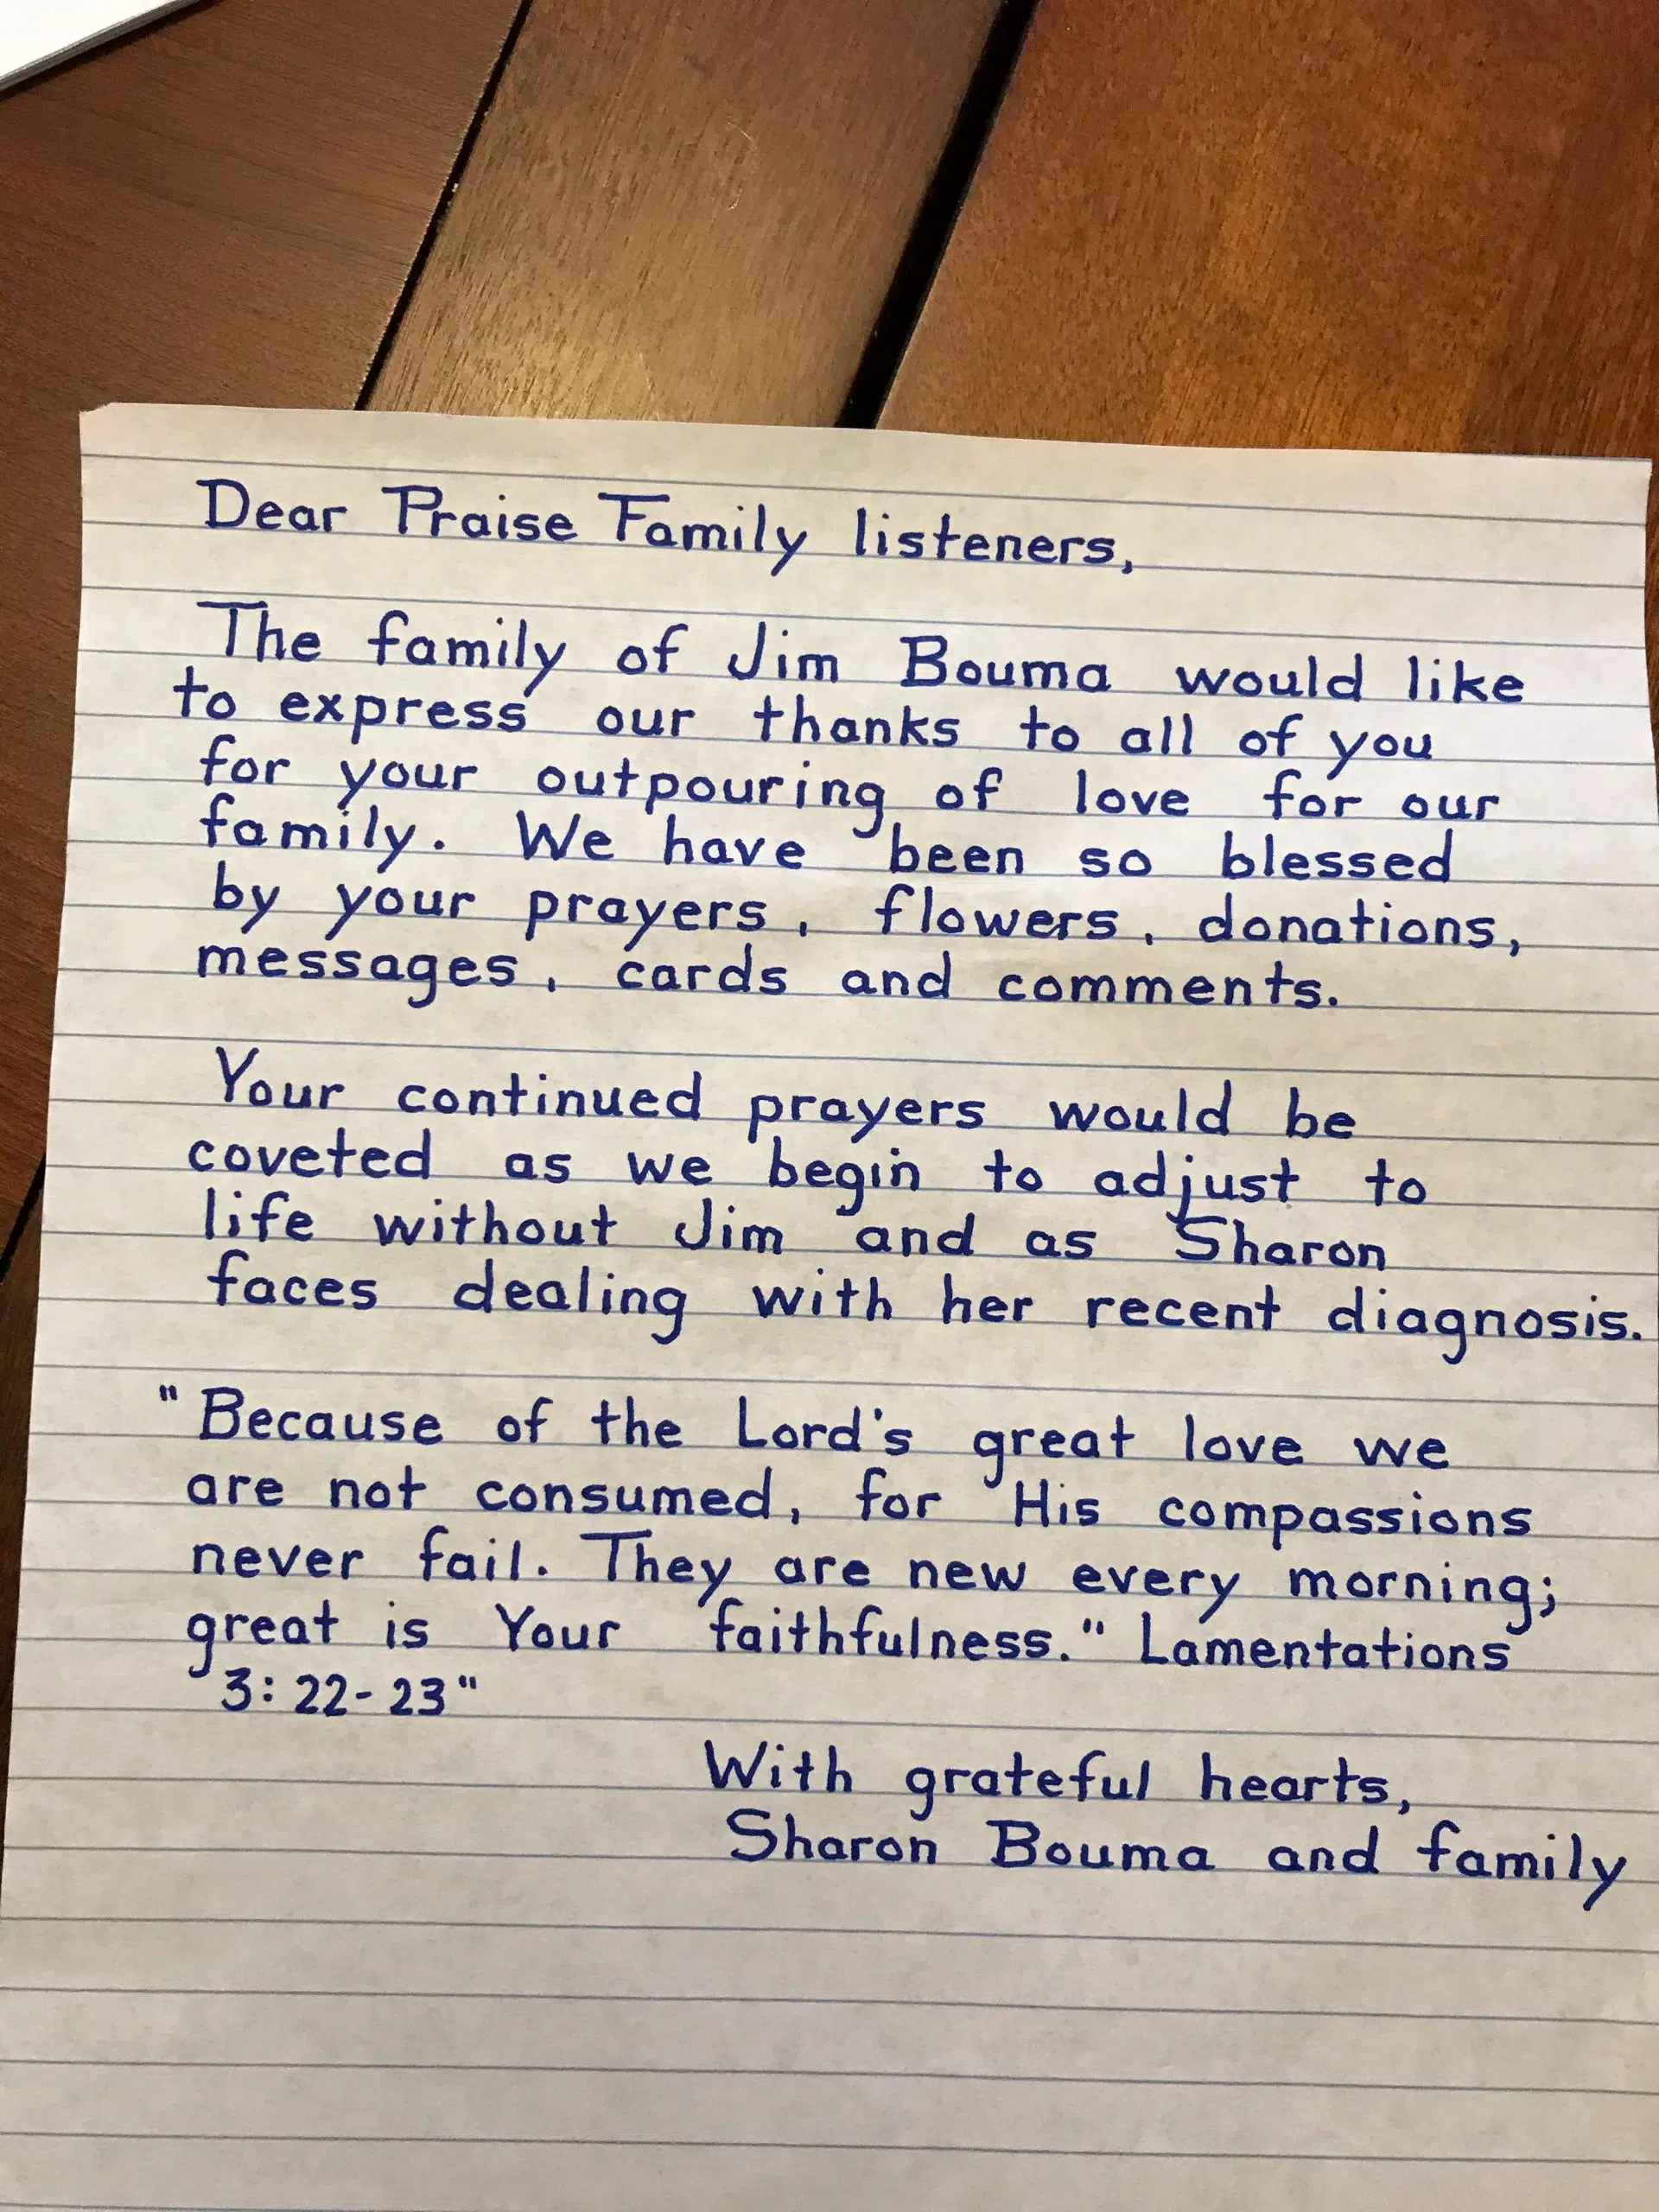 Dear Praise Family listeners,
The family of Jim Bouma would like
to express our thanks to all of you
for your outpouring of love for our
family. We have been so blessed
by your prayers, flowers, donations,
messages, cards and comments.
Your continued prayers would be
coveted as we begin to adjust to
life without Jim and as Sharon
faces dealing with her recent diagnosis.
"Because of the Lord's great love we
are not consumed, for His compassions
never fail. They are new every morning;
great is Your faithfulness." Lamentations
3:22-23"
With grateful hearts,
Sharon Bouma and family